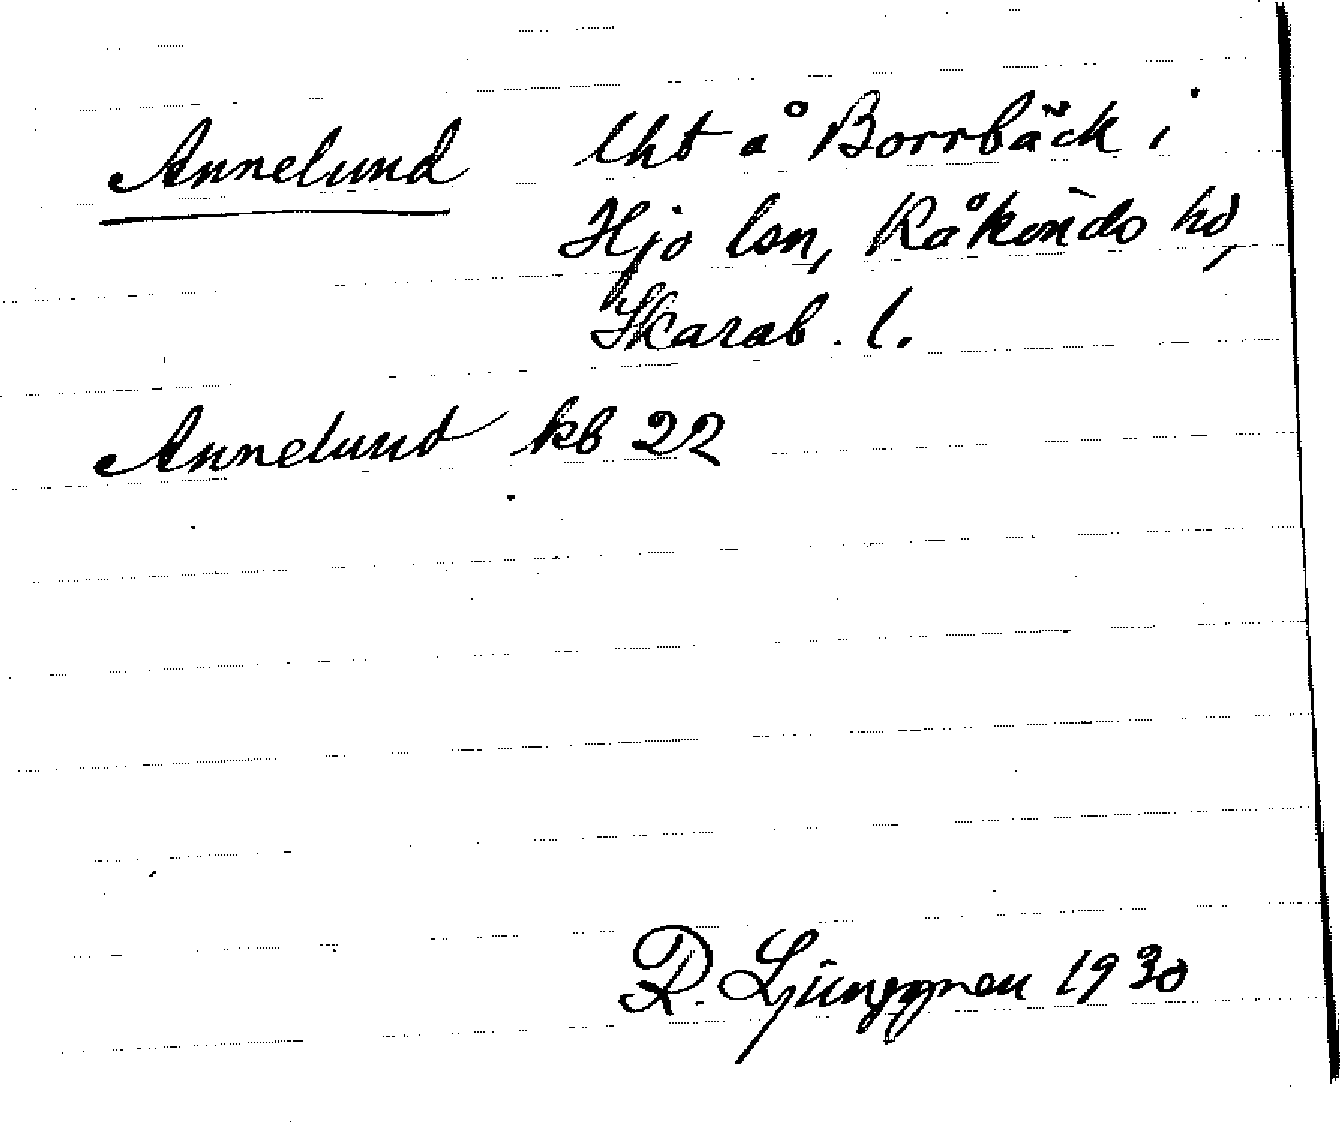 Annelund lht å Borrbäck i
Hjo lsn, Kåkinds hd,
Skarab. l.
Annelund kb 22
R. Ljunggren 1930